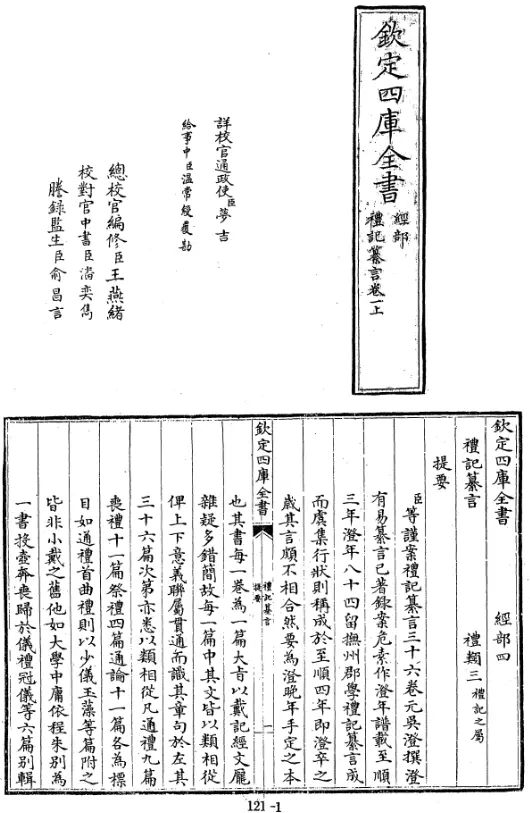 欽定四庫全書
經部
禮記纂言卷一上
詳校官通政使臣夢吉
給事中臣溫常綬覆勘
總校官編修臣王燕緒
校對官中書臣潘奕雋
謄錄監生臣俞昌言
欽定四庫全書
經部四
禮記纂言
禮類三禮記之屬
提要
臣等謹案禮記纂言三十六卷元吳澄撰澄
有易纂言已著錄案危素作澄年譜載至順
三年澄年八十四留撫州郡學禮記纂言成
而虞集行狀則稱成於至順四年即澄卒之
歲其言頗不相合然要為澄晚年手定之本
欽定四庫全書
禮記纂言
提要
一
也其書每一卷為一篇大旨以戴記經文厖
雜疑多錯簡故每一篇中其文皆以類相從
俾上下意義聯屬貫通而識其章句於左其
三十六篇次第亦悉以類相從凡通禮九篇
喪禮十一篇祭禮四篇通論十一篇各為標
目如通禮首曲禮則以少儀玉藻等篇附之
皆非小戴之舊他如大學中庸依程朱別為
一書投壺奔喪歸於儀禮冠儀等六篇別輯
121-1